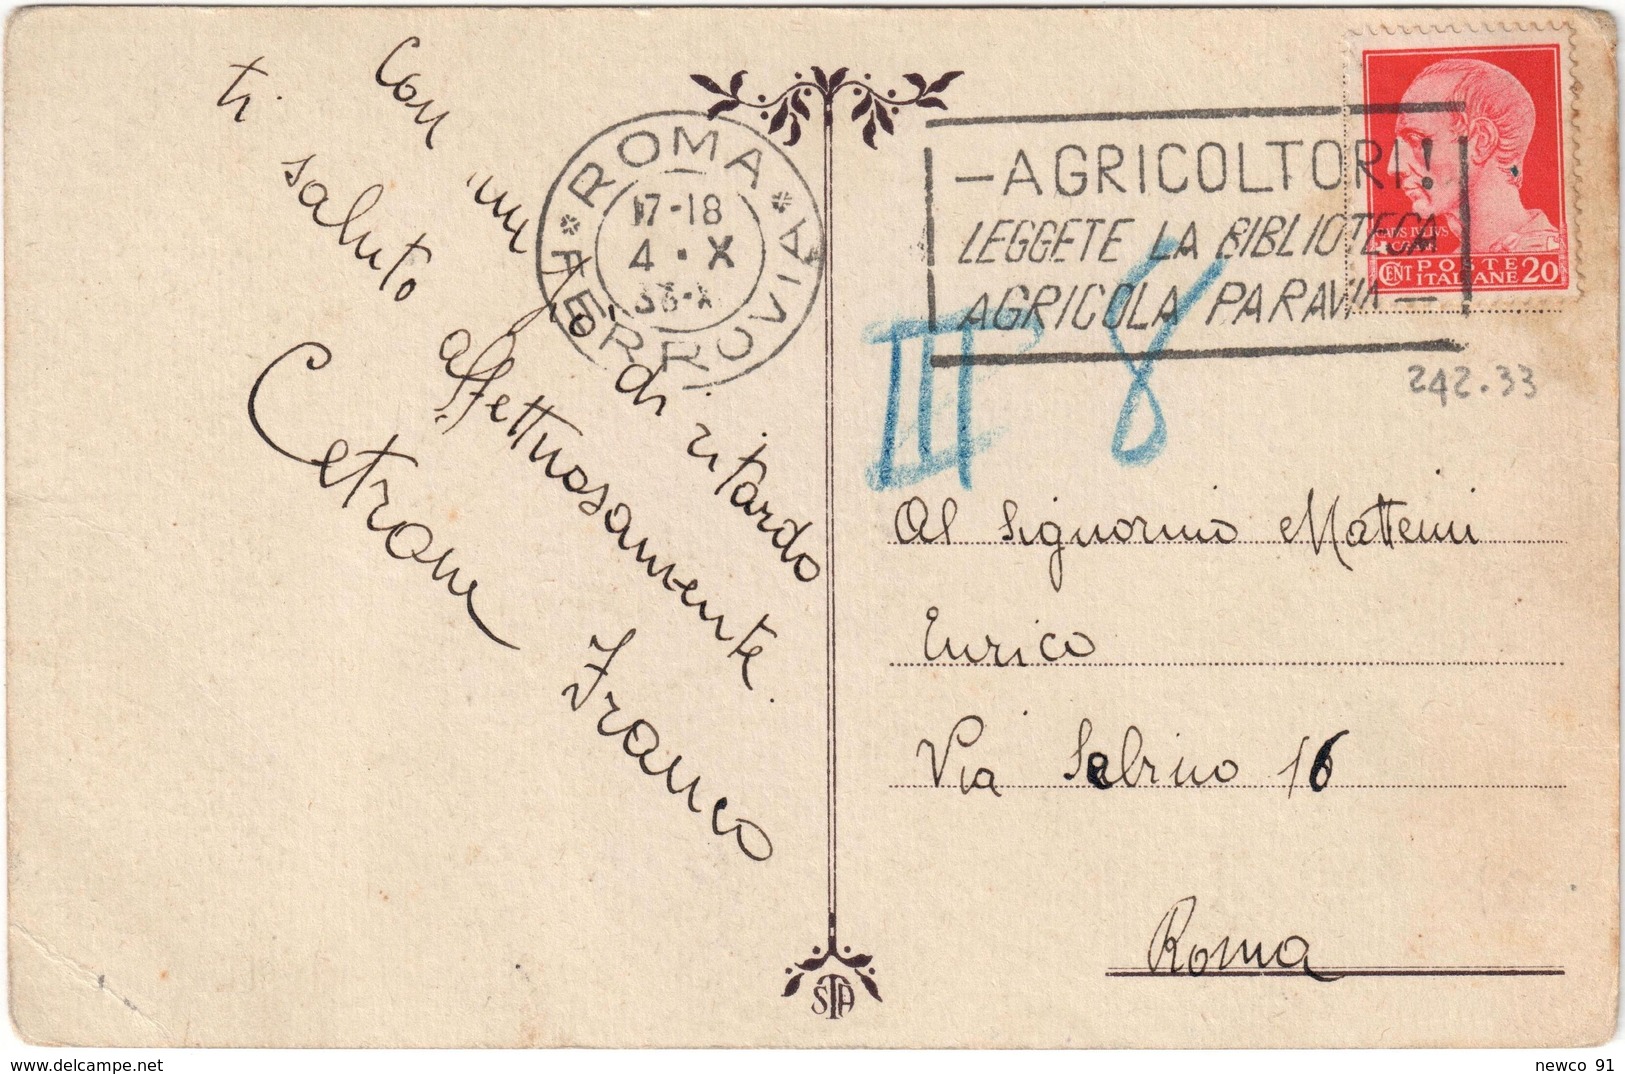 Con un po' di ritardo
ti saluto affettuosamente.
Cetrone Franco
ROMA
FERROVIA
17-18
4 · X
33-X
—AGRICOLTORI!
LEGGETE LA BIBLIOTECA
AGRICOLA PARAVIA—
CENT POSTE ITALIANE 20
III 8
242.33
Al Signorino Matteini
Enrico
Via 16
Roma
STA
newco 91